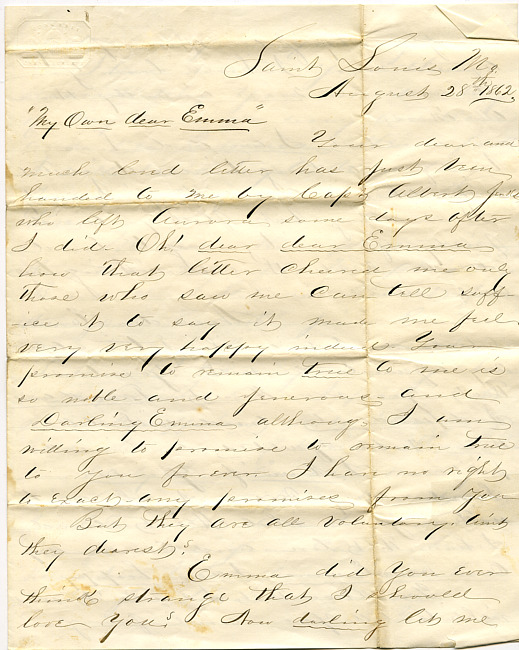 Saint Louis Mo.
August 28th 1862
"My Own dear Emma"
Your dear and
much loved letter has just been
handed to me by Capt Albert
who left Aurora some days after
I did. Oh! dear dear Emma
how that letter cheered me only
those who saw me can tell suff-
-ice it to say it made me feel
very very happy indeed. Your
promise to remain true to me is
so noble and generous and
Darling Emma althoug I am
willing to promise to remain true
to you forever I have no right
to exact any promises from you
But they are all voluntary aint
they dearest?
Emma did you ever
think strange that I should
love you? Now darling let me